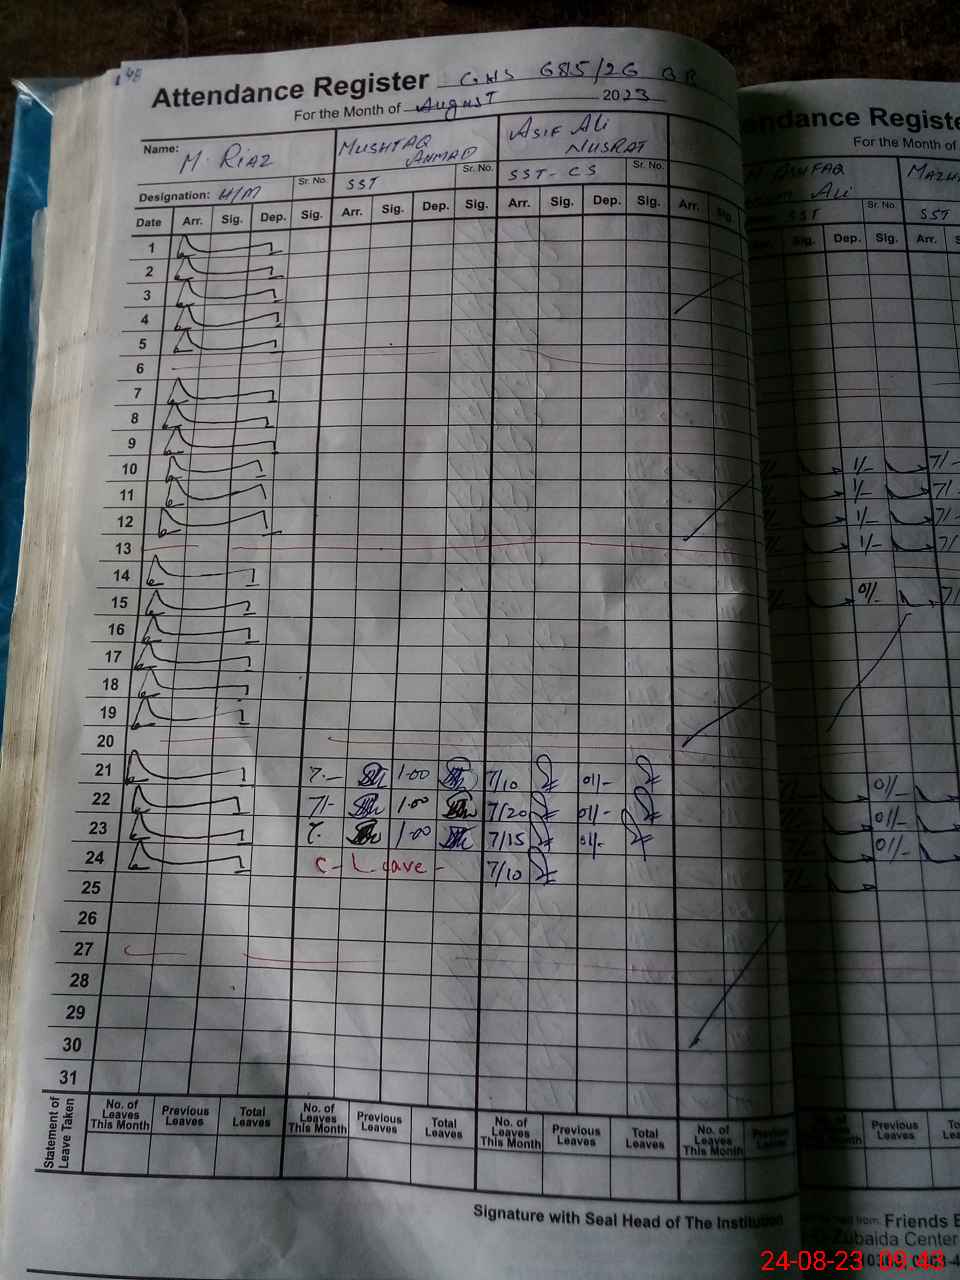 148
Attendance Register GHS 685/26 GB
For the Month of August 2023
Name: M. RIAZ MUSHTAQ AHMAD ASIF ALI NUSRAT
Designation: H/M Sr. No. SST Sr. No. SST-CS Sr. No.
Date Arr. Sig. Dep. Sig. Arr. Sig. Dep. Sig. Arr. Sig. Dep. Sig. Arr. Sig.
1
2
3
4
5
6
7
8
9
10
11
12
13
14
15
16
17
18
19
20
21 7.- 1.00 7/10 01/-
22 7/- 1.00 7/20 01/-
23 7. 1.00 7/15 01/-
24 C-Leave- 7/10
25
26
27
28
29
30
31
Statement of Leave Taken
No. of Leaves This Month Previous Leaves Total Leaves No. of Leaves This Month Previous Leaves Total Leaves No. of Leaves This Month Previous Leaves Total Leaves No. of Leaves This Month
Signature with Seal Head of The Institution
endance Registe
For the Month of
Ali
Sr. No.
SST SST
Sig. Dep. Sig. Arr.
1/- 7/-
1/- 7/-
1/- 7/-
1/- 7/
01/- 7/
01/-
01/-
01/-
Leaves This Month Previous Leaves
from: Friends
Zubaida Center
24-08-23 09:43